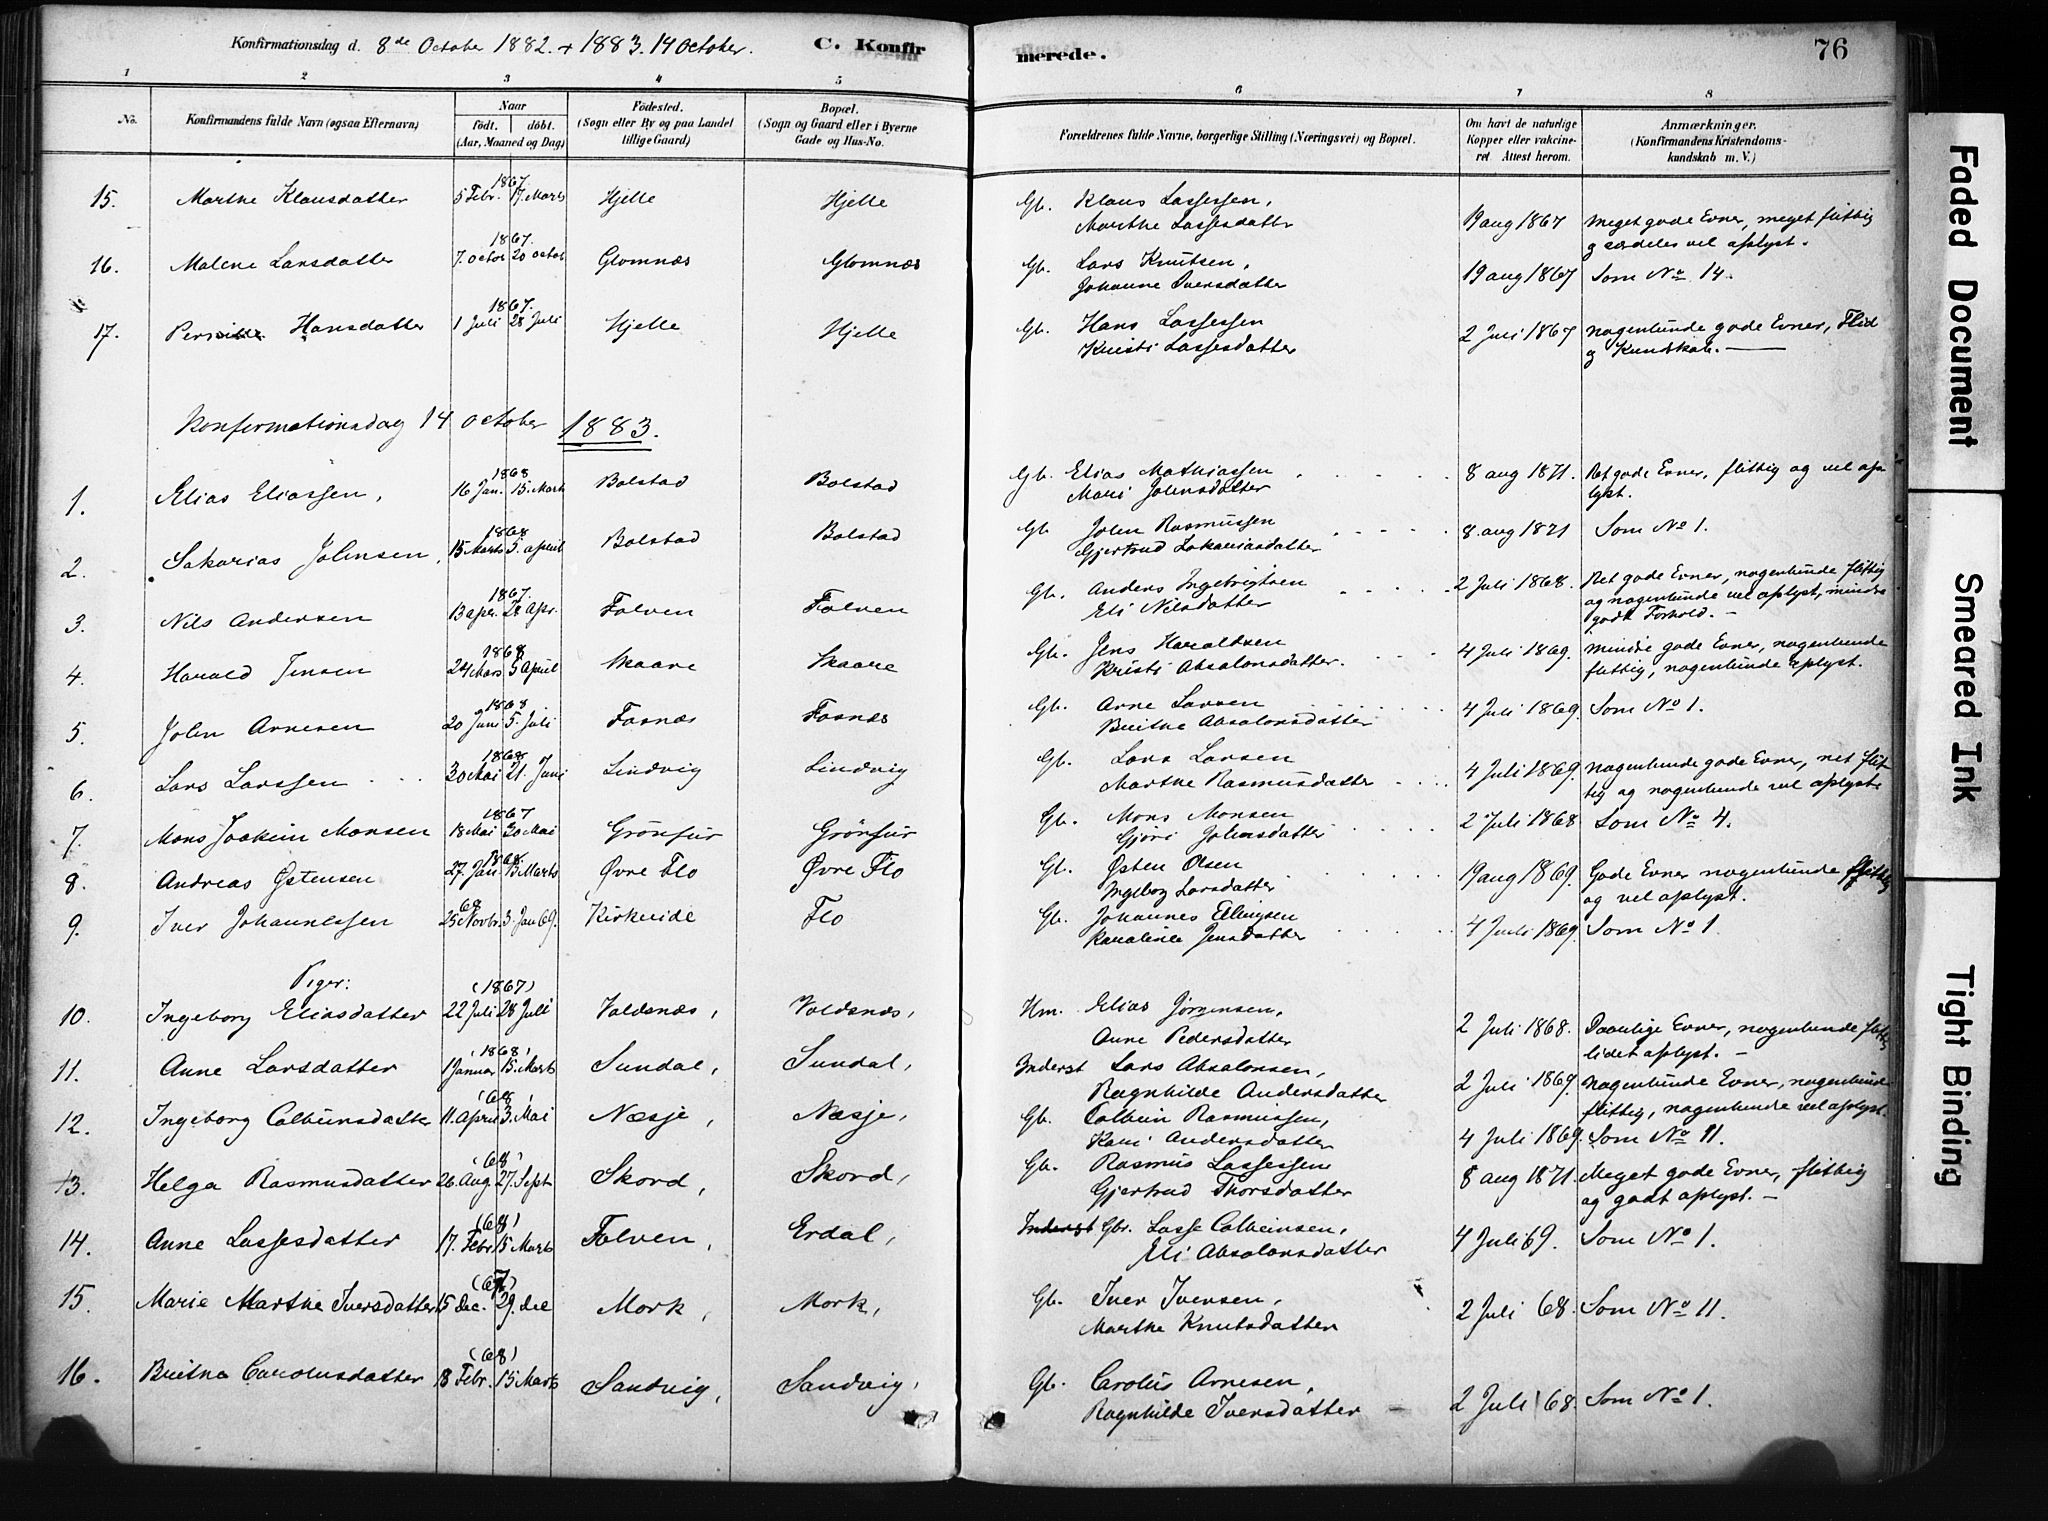 Konfirmationsdag d. 8de October 1882. + 1883. 14 October. C. Konfir merede. 76
1 2 3 4 5 6 7 8
No. Konfirmandens fulde Navn (ogsaa Efternavn) Naar født. døbt. (Aar, Maaned og Dag) Födested. (Sogn eller By og paa Landet tillige Gaard) Bopæl. (Sogn og Gaard eller i Byerne Gade og Hus-No. Forældrenes fulde Navne, borgerlige Stilling (Næringsvei) og Bopæl. Om havt de naturlige Kopper eller vakcineret Attest herom. Anmærkninger. (Konfirmandens Kristendomskundskab m. V.)
15. Marthe Klausdatter 1867 5 Febr. 17. Marts Hjelle Hjelle Gb. Klaus Lassessen, Marthe Lassesdatter 19 aug 1867 Meget gode Evner, meget flittig og særdeles vel oplyst.
16. Malene Larsdatter 1867. 7. octor 20 octor Glomnæs Glomnæs Gb. Lars Knutsen, Johanne Iversdatter 19 aug 1867 Som No 14.
17. Hansdatter 1867. 1 Juli 28 Juli Hjelle Hjelle Gb. Hans Lassessen Kristi Lassesdatter 2 Juli 1867 nogenlunde gode Evner, Flid og Kundskab.
Konfirmationsdag 14 october 1883.
1. Elias Eliassen, 1868 16 Jan. 15. Marts Bolstad Bolstad Gb. Elias Mathiassen Mari Johnsdatter 8 aug 1871. Ret gode Evner, flittig og vel oplyst.
2. Sakarias Johnsen, 1868 15 Marts 5. april Bolstad Bolstad Gb. John Rasmussen Gjertrud Sakariasdatter 8. aug 1871 Som No 1.
3. Nils Andersen 1867. 13 apr. 22 Apr. Folven Folven Gb. Anders Ingebrigtsen Eli Nilsdatter 2 Juli 1868. Ret gode Evner, nogenlunde flittig og nogenlunde vel oplyst, mindre godt Forhold.
4. Harald Jensen 1868 24 Mars 5 April Skaare Skaare Gb. Jens Haraldsen Kristi Absalonsdatter. 4 Juli 1869. mindre gode Evner, nogenlunde flittig, nogenlunde oplyst.
5. John Arnesen 1868 20 Juni 5. Juli Fosnæs Fosnæs Gb. Arne Larsen Brithe Absalonsdatter 4 Juli 1869. Som No 1.
6. Lars Larssen 1868 30 Mai 21. Juni Lindvig Lindvig Gb. Lars Larsen Marthe Rasmusdatter 4 Juli 1869. nogenlunde gode Evner, ret flittig og nogenlunde vel oplyst.
7. Mons Joakim Monsen 1867 18 Mai 30 Mai Grönfur Grönfur Gb. Mons Monsen Gjöri Johnsdatter 2 Juli 1868 Som No 4.
8. Andreas Østensen 1868. 27. Jan 15 Marts Øvre Flo Øvre Flo Gb. Østen Olsen Ingeborg Larsdatter 19 aug 1869. Gode Evner nogenlunde flittig og vel oplyst.
9. Iver Johannessen 68 25 Novbr. 3. Jan 69. Kirkeide Flo Gb. Johannes Ellingsen Karoline Jensdatter 4 Juli 1869. Som No 1.
Piger:
10. Ingeborg Eliasdatter (1867) 22 Juli 28 Juli Voldsnæs, Voldsnæs, Hm. Elias Jørgensen, Anne Pedersdatter 2 Juli 1868. Daarlige Evner, nogenlunde flittig lidet oplyst.
11. Anne Larsdatter (1868) 1 Januar 15. Marts Sundal, Sundal, Inderst Lars Absalonsen, Ragnhilde Andersdatter 2 Juli 1869. nogenlunde Evner, nogenlunde flittig, nogenlunde vel oplyst.
12. Ingeborg Colbeinsdatter (68) 11. April 3. Mai Næsje, Næsje, Gb. Colbein Rasmussen, Kari Andersdatter 4 Juli 1869. Som No 11.
13. Helga Rasmusdatter (68) 26. Aug 27. Sept Skord, Skord, Gb. Rasmus Lassessen Gjertrud Thorsdatter 8 aug 1871. Meget gode Evner, flittig og godt oplyst.
14. Anne Lassesdatter (68) 17. Febr 15 Marts Folven, Erdal, Inderst Gbr. Lasse Colbeinsen, Eli Absalonsdatter 4 Juli 69. Som No 1.
15. Marie Marthe Iversdatter (67) 15 dec. 29. dec Mork, Mork, Gb. Iver Iversen, Marthe Knutsdatter 2 Juli 68. Som No 11.
16. Brithe Carolusdatter (68) 18 Febr. 15 Marts Sandvig, Sandvig, Gb. Carolus Arnesen, Ragnhilde Iversdatter 2 Juli 68. Som No 1.
Faded Document
Smeared Ink
Tight Binding